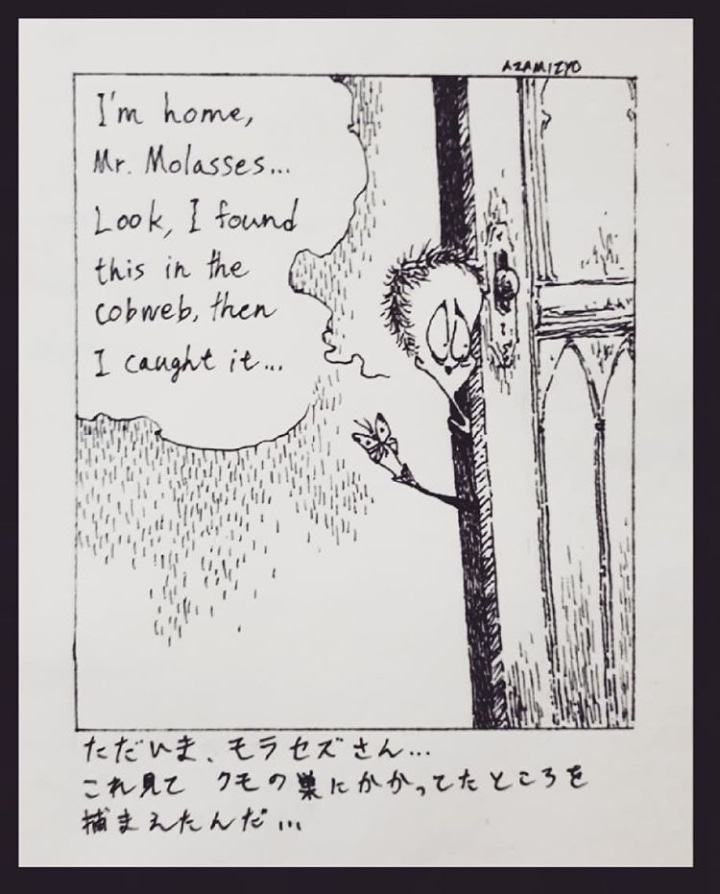 AZAMIZYO
I'm home,
Mr. Molasses...
Look, I found
this in the
cobweb, then
I caught it...
ただいま、モラセズさん...
これ見て クモの巣にかかってたところを
捕まえたんだ...